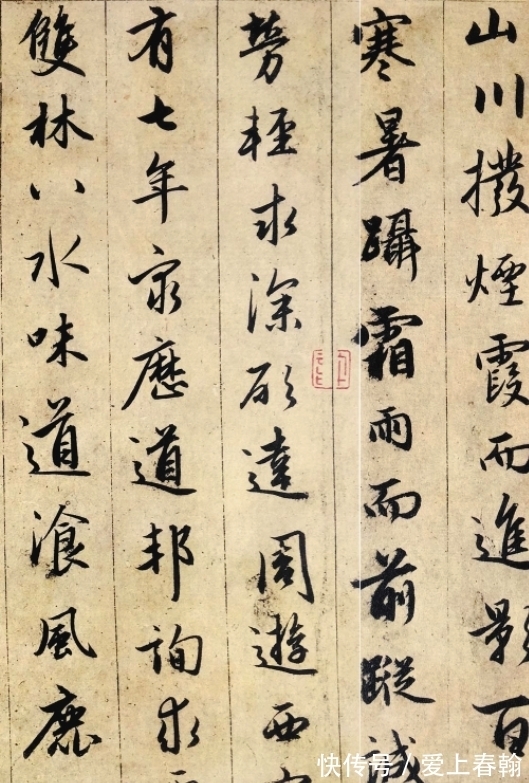 山川撥煙霞而進影百
寒暑躡霜雨而前蹤誠
勞輕求深願達周遊西
有七年窮歷道邦詢求
雙林八水味道飡風鹿
快传号/爱上春翰